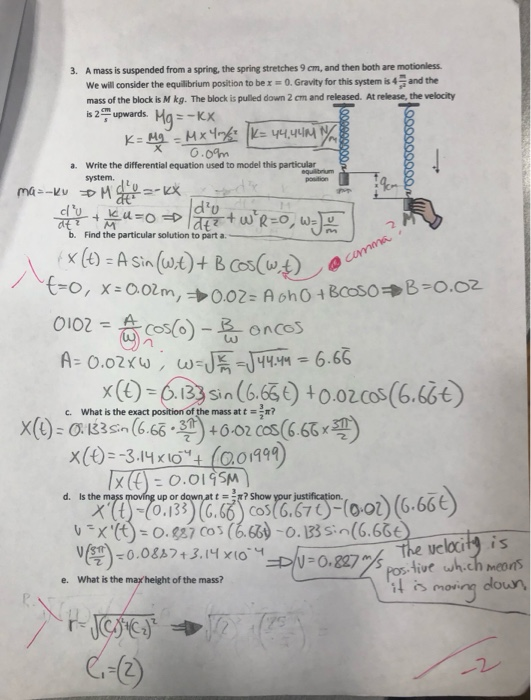 3. A mass is suspended from a spring, the spring stretches 9 cm, and then both are motionless.
We will consider the equilibrium position to be x = 0. Gravity for this system is 4 m/s² and the
mass of the block is M kg. The block is pulled down 2 cm and released. At release, the velocity
is 2 cm/s upwards. Mg = -Kx
K = Mg/x = M×4m/s²/0.09m K = 44.44M N/m
a. Write the differential equation used to model this particular
system.
equilibrium
position
9cm
M
ma = -ku ⇒ M d²u/dt² = -kx
d²u/dt² + k/M u = 0 ⇒ d²u/dt² + w²R = 0, w = √
b. Find the particular solution to part a.
comma?
x(t) = A sin(w,t) + B cos(w,t)
t=0, x=0.02m, ⇒ 0.02 = A sin0 + B cos0 ⇒ B = 0.02
0.02 = A/w cos(0) - B/w
A = 0.02×w, w = √k/m = √44.44 = 6.66
x(t) = 0.133 sin(6.66t) + 0.02 cos(6.66t)
c. What is the exact position of the mass at t = 3/2 π?
X(t) = 0.133 sin(6.66 · 3π/2) + 0.02 cos(6.66 × 3π/2)
x(t) = -3.14×10⁻⁴ + (0.01999)
x(t) = 0.0195M
d. Is the mass moving up or down at t = 3/2 π? Show your justification.
x'(t) = (0.133)(6.66) cos(6.67t) - (0.02)(6.66t)
v = x'(t) = 0.887 cos(6.66t) - 0.133 sin(6.66t)
V(3π/2) = 0.0887 + 3.14×10⁻⁴ ⇒ V = 0.827 m/s
The velocity is
positive which means
it is moving down,
e. What is the max height of the mass?
r = √(C₁)²+(C₂)² ⇒
C₁ = (2)
-2